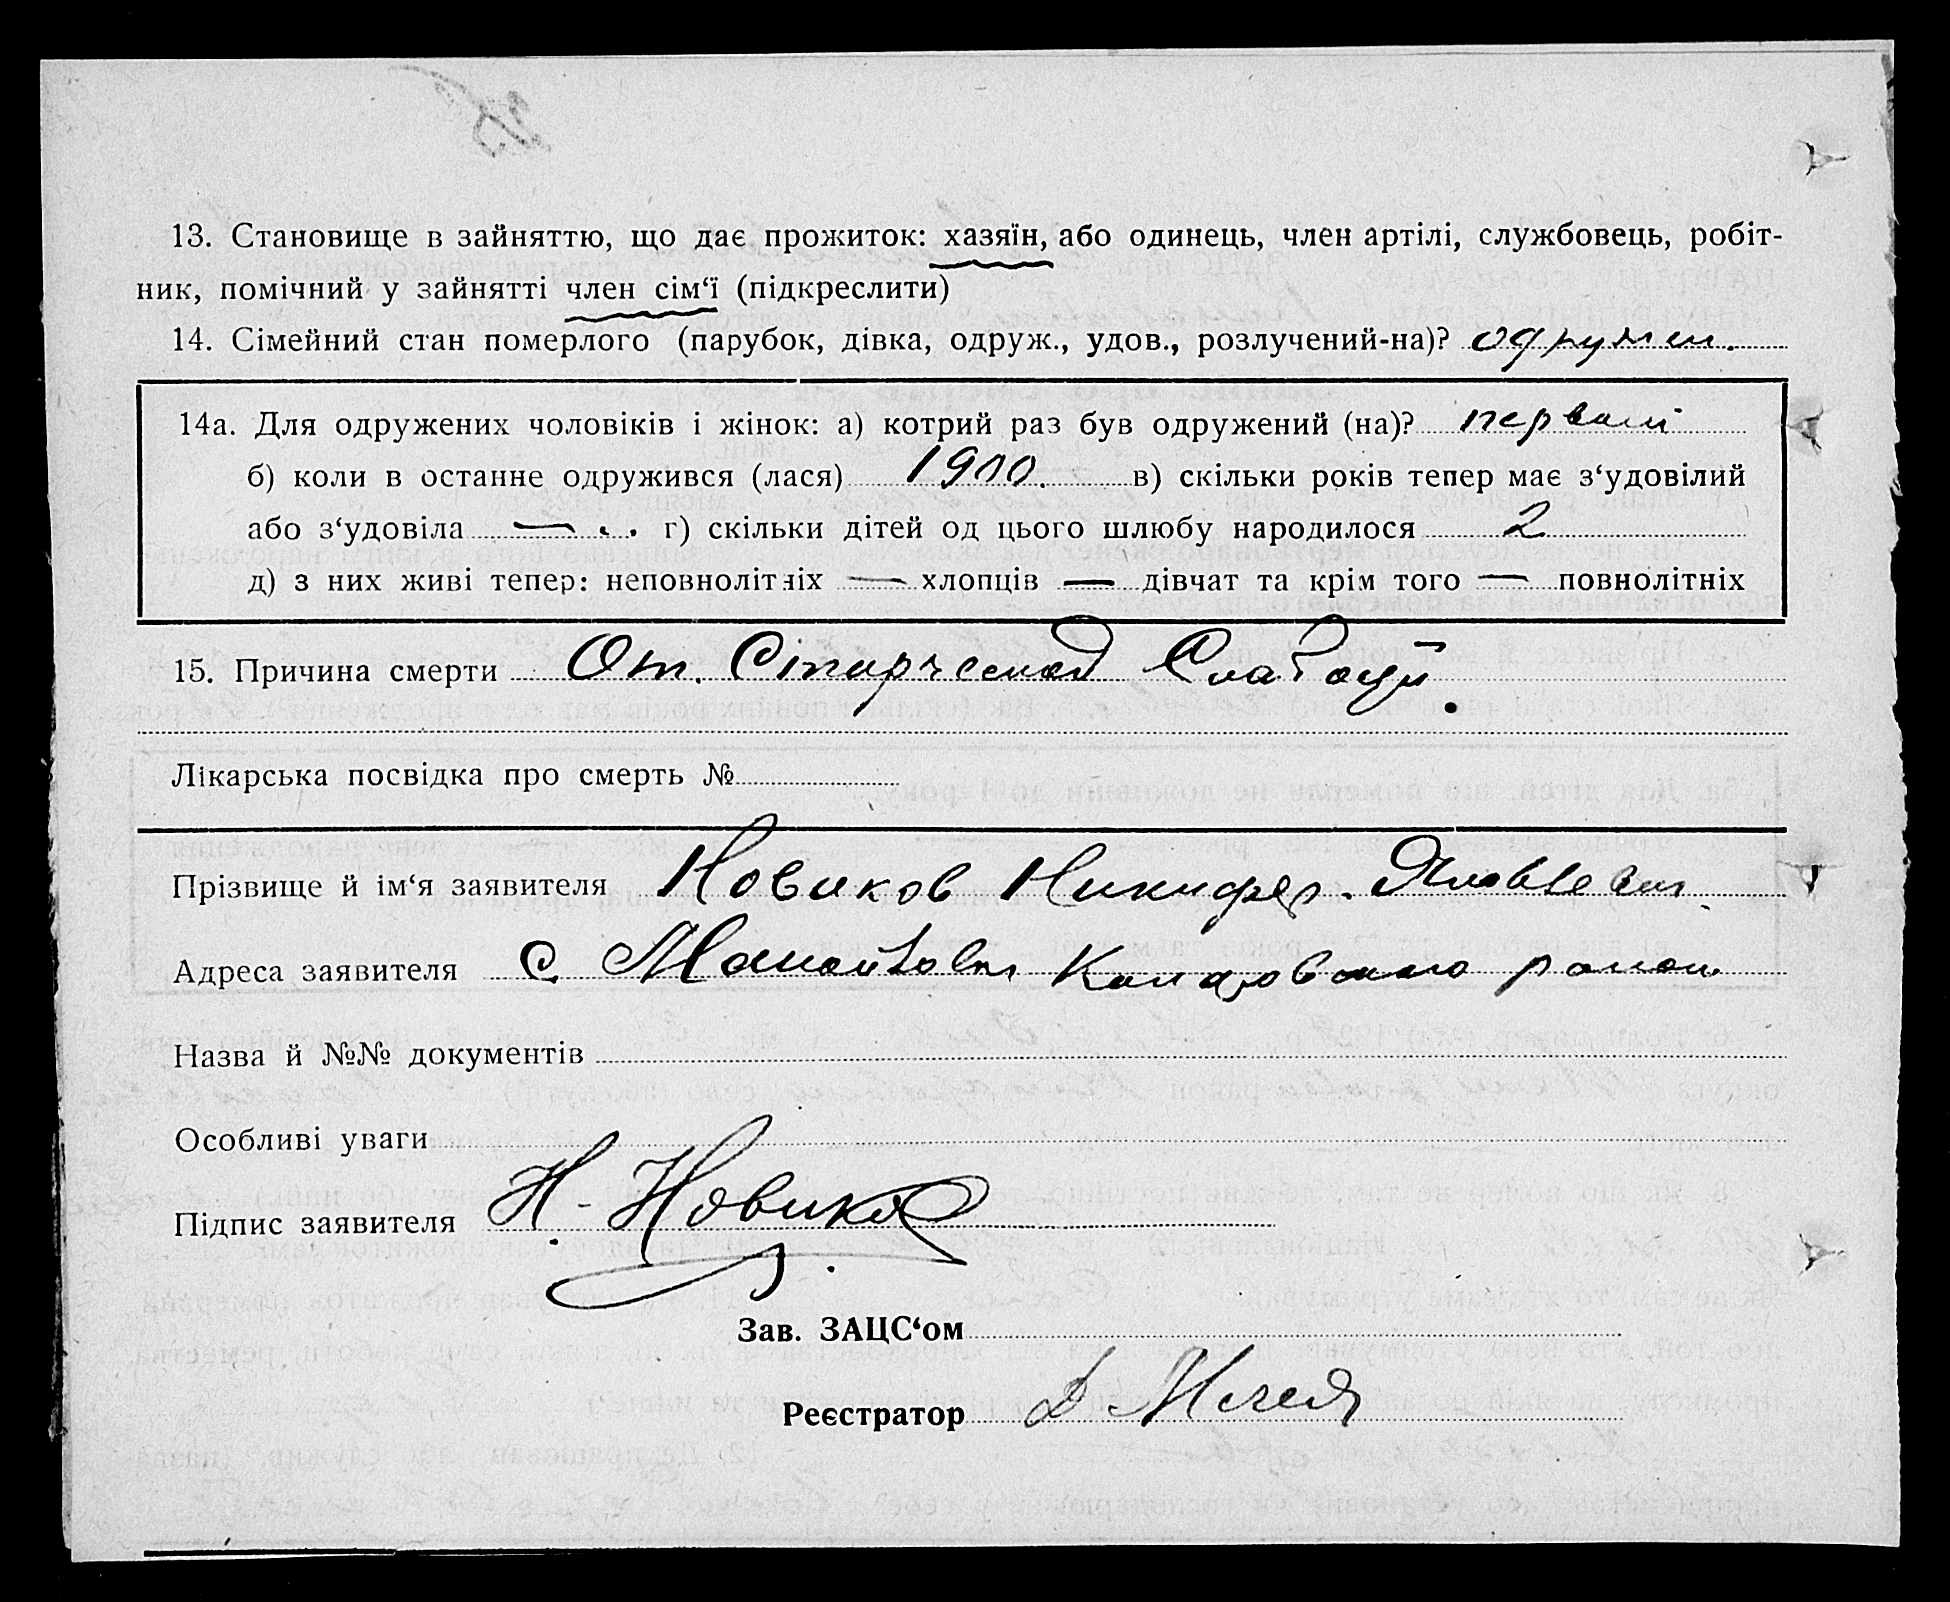 13. Становище в зайняттю, що дає прожиток: хазяїн, або одинець, член артілі, службовець, робіт-
ник, помічний у зайнятті член сім‘ї (підкреслити)
14. Сімейний стан померлого (парубок, дівка, одруж., удов., розлучений-на)?
14а. Для одружених чоловіків і жінок: а) котрий раз був одружений (на)? первый
б) коли в останне одружився (лася) 1900. в) скільки років тепер має з‘удовілий
або з‘удовіла — г) скільки дітей од цього шлюбу народилося 2
д) з них живі тепер: неповнолітніх — хлопців — дівчат та крім того — повнолітніх
15. Причина смерти От Старческой Слабости.
Лікарська посвідка про смерть №
Прізвище й ім‘я заявителя Новиков Никифор
Адреса заявителя с. района
Назва й №№ документів
Особливі уваги
Підпис заявителя Н. Новиков
Зав. ЗАЦС‘ом
Реєстратор